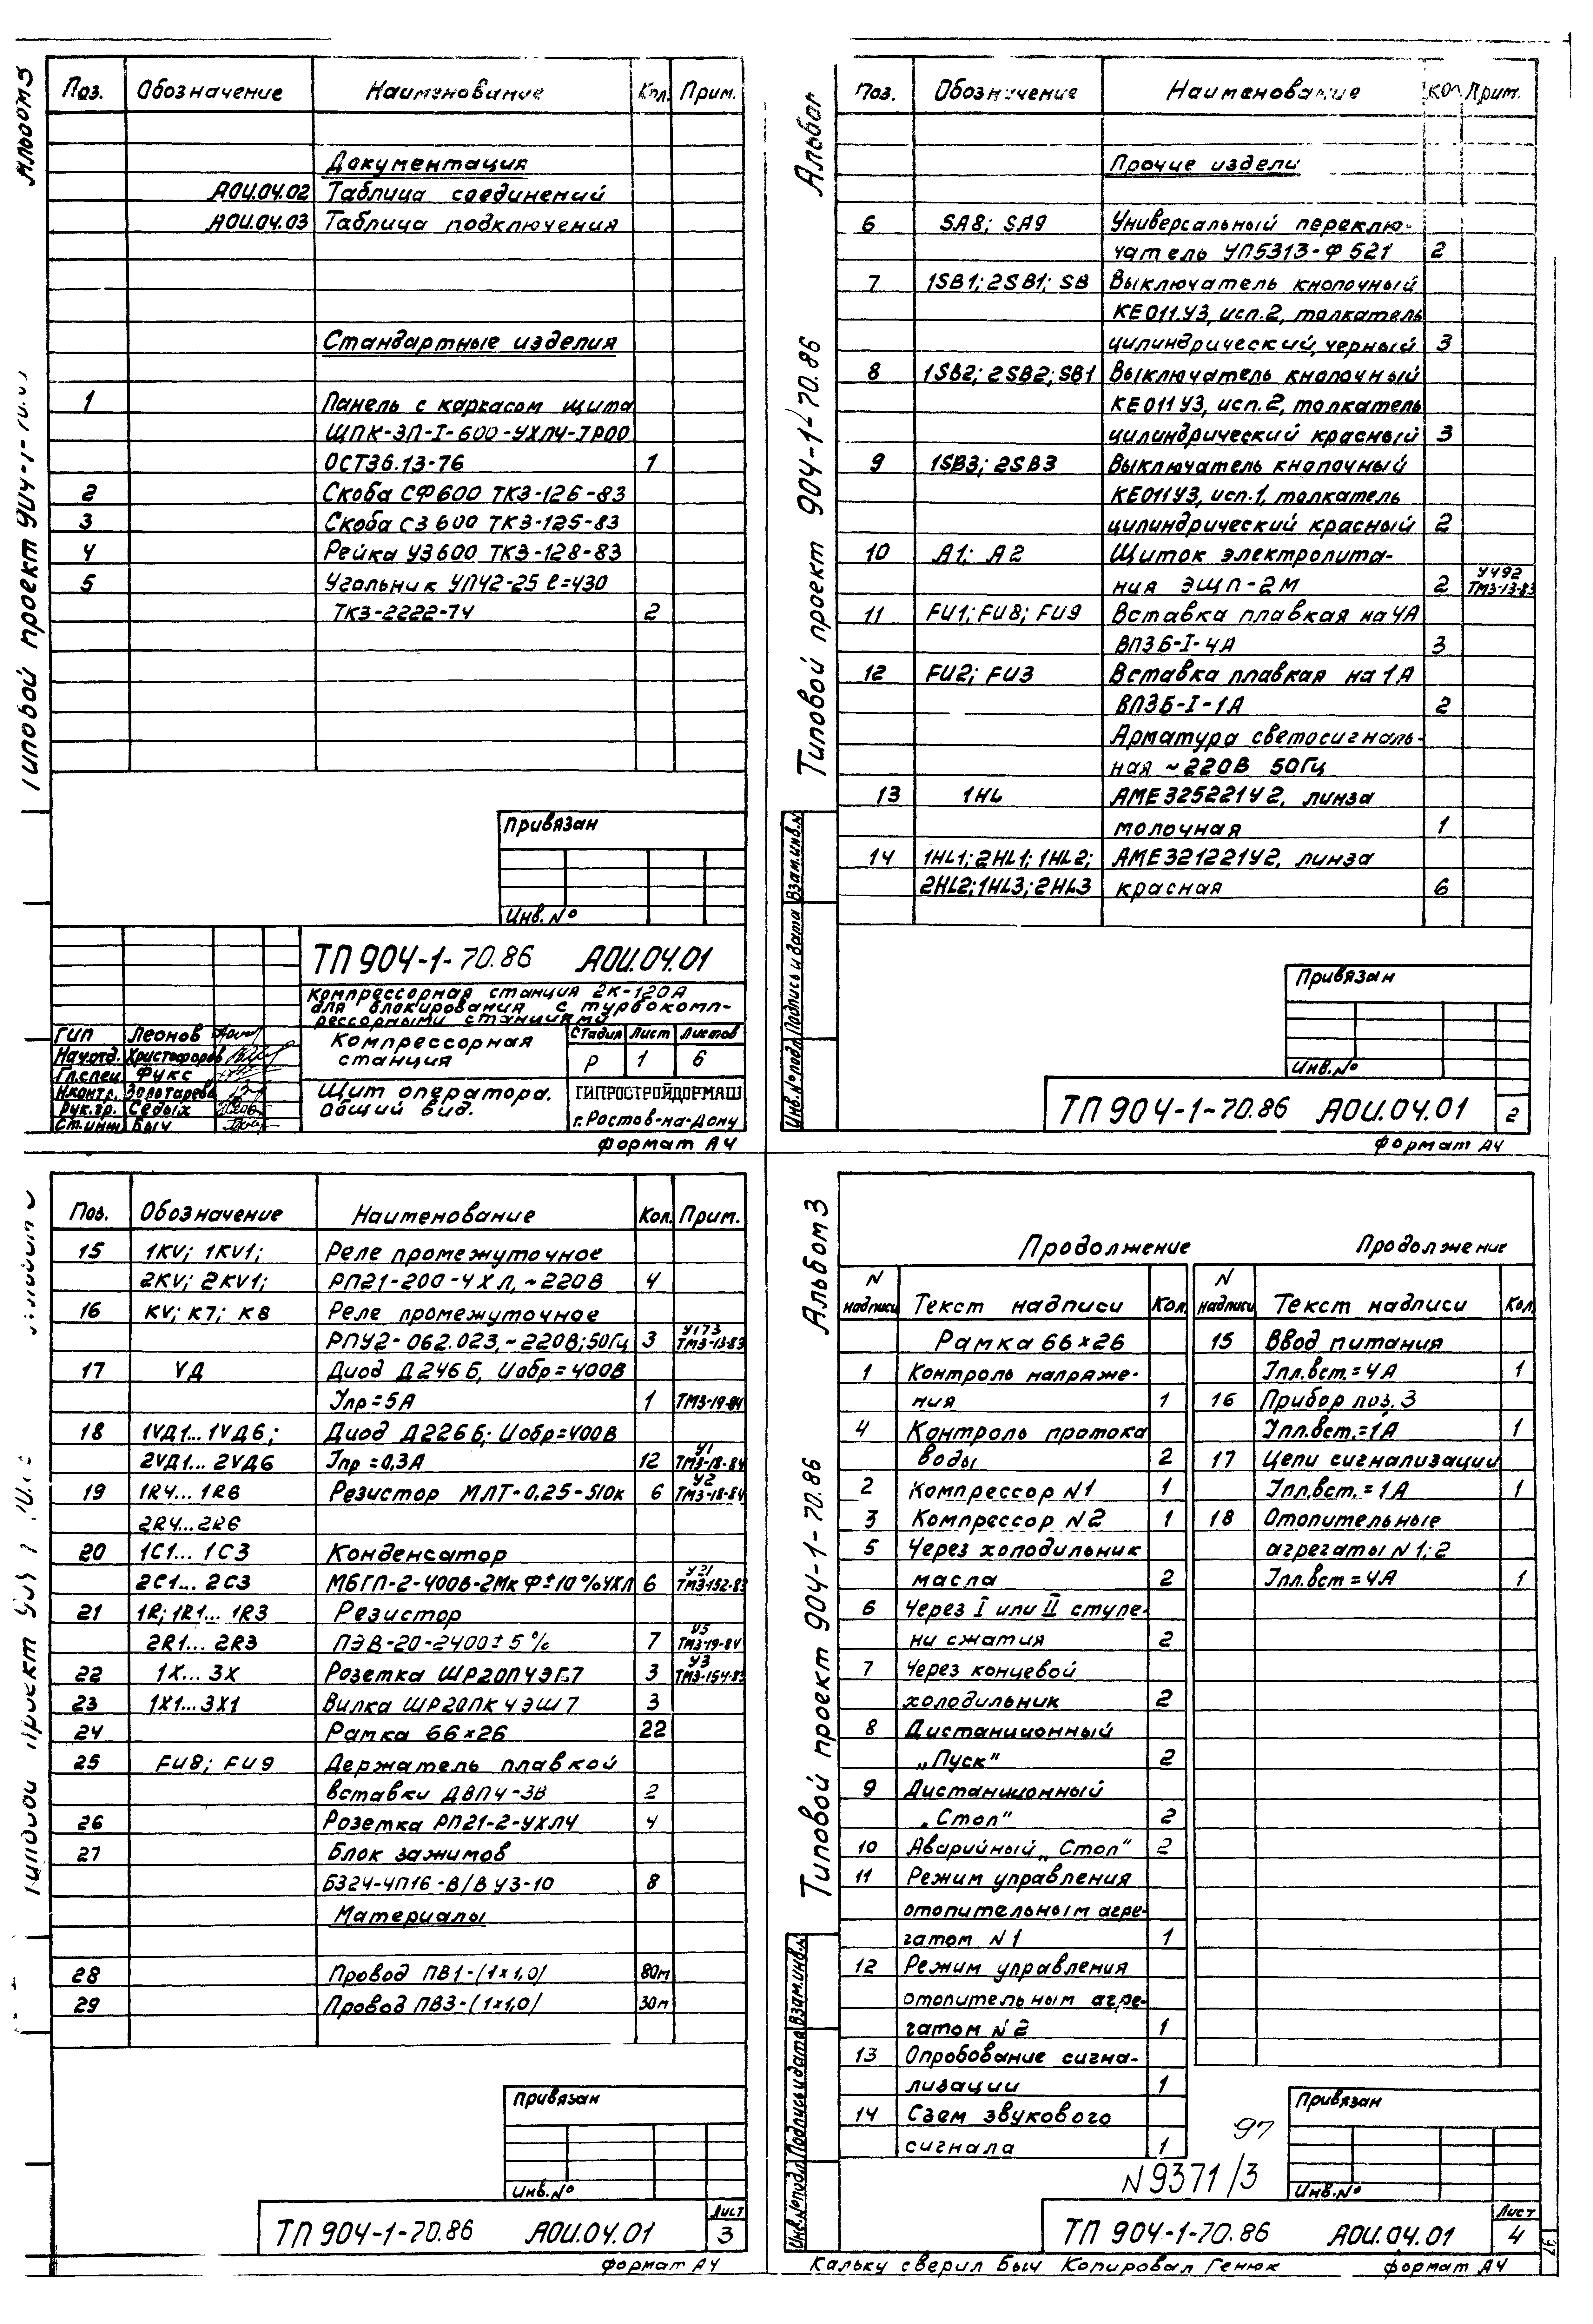 Поз. Обозначение Наименование Кол. Прим.
Документация
АОИ.04.02 Таблица соединений
АОИ.04.03 Таблица подключения
Стандартные изделия
1 Панель с каркасом щита
ЩПК-ЗП-I-600-УХЛ4-IР00
ОСТ36.13-76 1
2 Скоба СФ600 ТК3-126-83
3 Скоба С3 600 ТК3-125-83
4 Рейка У3600 ТК3-128-83
5 Угольник УП42-25 ℓ=430
ТК3-2222-74 2
Типовой проект 904-1-70.86
Альбом 3
Привязан
Инв.№
ТП 904-1-70.86 АОИ.04.01
Компрессорная станция 2К-120А
для блокирования с турбокомп-
рессорными станциями
ГИП Леонов
Нач.отд. Христофоров
Гл.спец Фукс
Н.контр. Золотарева
Рук.гр. Седых
Ст.инж Быч
Компрессорная
станция
Стадия Лист Листов
Р 1 6
Щит оператора.
Общий вид.
ГИПРОСТРОЙДОРМАШ
г.Ростов-на-Дону
Формат А4
Поз. Обозначение Наименование Кол Прим.
Прочие издели
6 SA8; SA9 Универсальный переклю-
чатель УП5313-Ф 521 2
7 1SB1; 2SB1; SB Выключатель кнопочный
КЕ011.У3, исп.2, толкатель
цилиндрический, черный 3
8 1SB2; 2SB2; SB1 Выключатель кнопочный
КЕ011 У3, исп.2, толкатель
цилиндрический красный 3
9 1SB3; 2SB3 Выключатель кнопочный
КЕ011У3, исп.1, толкатель
цилиндрический красный 2
10 А1; А2 Щиток электропита-
ния ЭЩП-2М 2 У492
ТМ3-13-83
11 FU1; FU8; FU9 Вставка плавкая на 4А
ВП3Б-I-4А 3
12 FU2; FU3 Вставка плавкая на 1А
ВП3Б-I-1А 2
Арматура светосигналь-
ная ~220В 50Гц
13 1HL АМЕ325221У2, линза
молочная 1
14 1HL1; 2HL1; 1HL2; АМЕ321221У2, линза
2HL2; 1HL3; 2HL3 красная 6
Типовой проект 904-1-70.86
Альбом
Инв.№подл Подпись и дата Взам.инв.№
Привязан
Инв.№
ТП 904-1-70.86 АОИ.04.01 2
Формат А4
Поз. Обозначение Наименование Кол. Прим.
15 1KV; 1KV1; Реле промежуточное
2KV; 2KV1; РП21-200-УХЛ, ~220В 4
16 KV; К7; К8 Реле промежуточное
РПУ2-062.023, ~220В; 50Гц 3 У173
ТМ3-13-83
17 VД Диод Д246Б, Uобр=400В
Iпр=5А 1 ТМ3-19-84
18 1VД1...1VД6; Диод Д226Б; Uобр=400В
2VД1...2VД6 Iпр=0,3А 12 У1
ТМ3-18-84
19 1R4...1R6 Резистор МЛТ-0,25-510к 6 У2
ТМ3-18-84
2R4...2R6
20 1С1...1С3 Конденсатор
2С1...2С3 МБГП-2-400В-2МкФ±10%УХЛ 6 У21
ТМ3-152-83
21 1R; 1R1...1R3 Резистор
2R1...2R3 ПЭВ-20-2400±5% 7 У5
ТМ3-19-84
22 1Х...3Х Розетка ШР20П4ЭГ7 3 У3
ТМ3-154-83
23 1Х1...3Х1 Вилка ШР20ПК4ЭШ7 3
24 Рамка 66×26 22
25 FU8; FU9 Держатель плавкой
вставки ДВП4-3В 2
26 Розетка РП21-2-УХЛ4 4
27 Блок зажимов
БЗ24-4П16-В/В У3-10 8
Материалы
28 Провод ПВ1-(1×1,0) 80м
29 Провод ПВ3-(1×1,0) 30м
Привязан
Инв.№
ТП 904-1-70.86 АОИ.04.01 Лист
3
Формат А4
Альбом 3
Типовой проект 904-1-70.86
Продолжение
N надписи Текст надписи Кол.
Рамка 66×26
1 Контроль напряже-
ния 1
4 Контроль протока
воды 2
2 Компрессор N1 1
3 Компрессор N2 1
5 Через холодильник
масла 2
6 Через I или II ступе-
ни сжатия 2
7 Через концевой
холодильник 2
8 Дистанционный
„Пуск" 2
9 Дистанционный
„Стоп" 2
10 Аварийный „Стоп" 2
11 Режим управления
отопительным агре-
гатом N1 1
12 Режим управления
отопительным агре-
гатом N2 1
13 Опробование сигна-
лизации 1
14 Съем звукового
сигнала 1
Продолжение
N надписи Текст надписи Кол.
15 Ввод питания
Iпл.вст.=4А 1
16 Прибор поз.3
Iпл.вст.=1А 1
17 Цепи сигнализации
Iпл.вст.=1А 1
18 Отопительные
агрегаты N1; 2
Iпл.вст=4А 1
Инв.№подл Подпись и дата Взам.инв.№
97
N9371/3
Привязан
Инв.№
ТП 904-1-70.86 АОИ.04.01 Лист
4
Кальку сверил Быч Копировал Генюк Формат А4
37